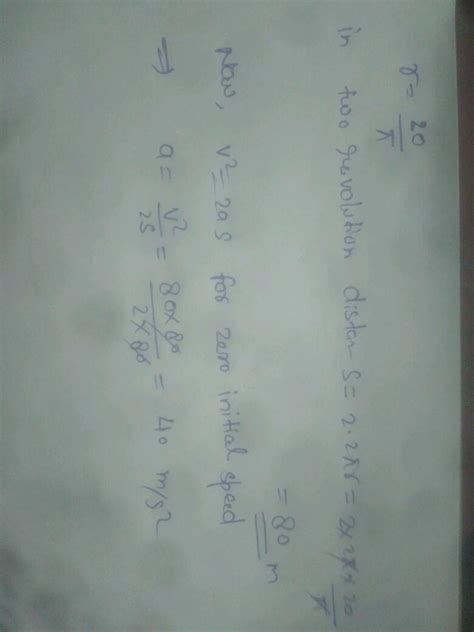 r = 20/π
in two revolution distan S = 2·2πr = 2×2π×20/π
= 80 m
Now, v² = 2as for zero initial speed
⇒ a = v²/2S = 80×80/2×80 = 40 m/s²